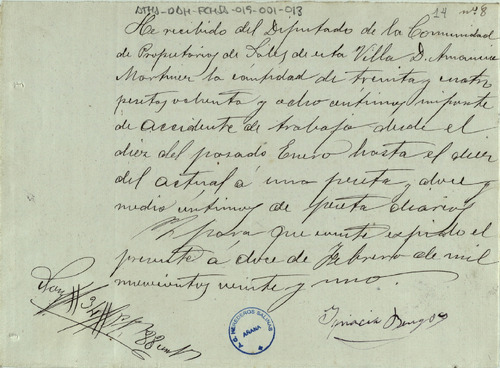 ATHA-DAH-FCHDS-019-001-013
14 nº 8
He recibido del Diputado de la Comunidad
de Propietarios de Salts de esta Villa D. Amancio
Martinez la cantidad de treinta y cuatro
pesetas ochenta y ocho centimos importe
de accidente de trabajo desde el
diez del pasado Enero hasta el diez
del actual á una peseta, doce y
medio centimos de peseta diarios
Y para que conste expido el
presente a doce de Febrero de mil
novecientos veinte y uno.
Son # 34 # 88
Ignacio
A.C. HEREDEROS SALINAS
ARABA